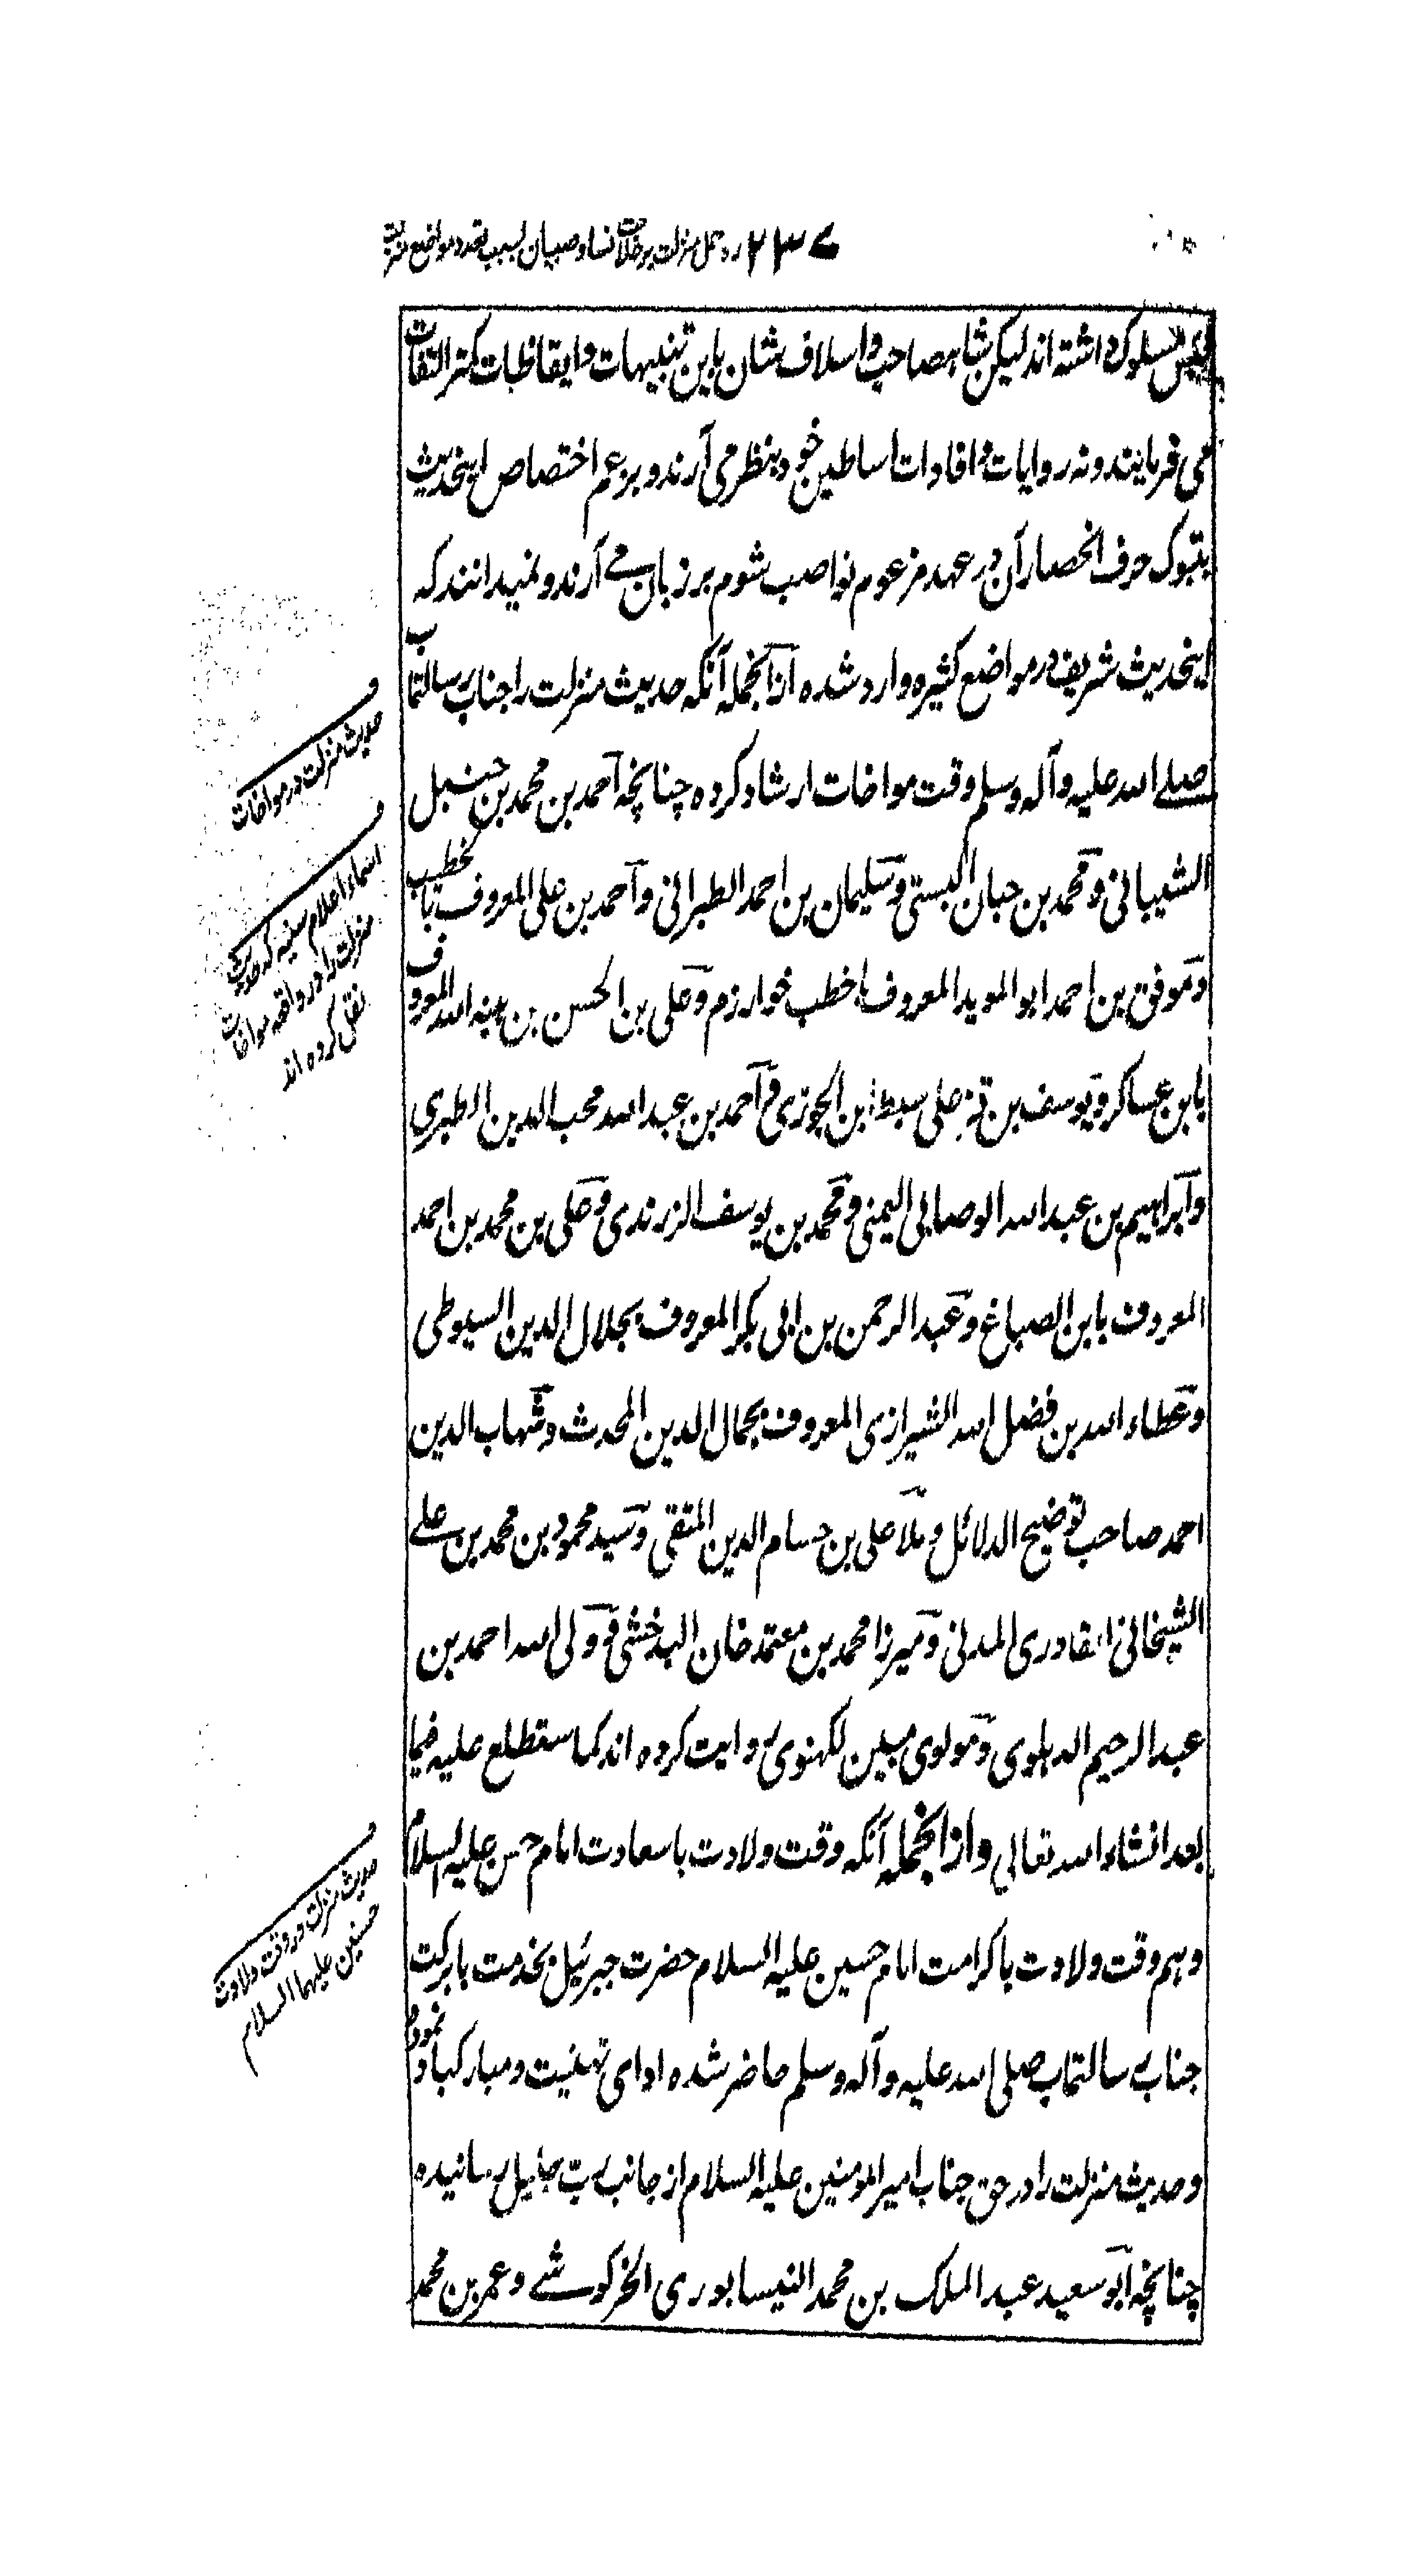 ۲۳۷ رد حمل منزلت بر خلافت نساء و صبیان بسبب تعدد مواضع
مسلوک داشته اند لیکن شاهصاحب و اسلاف شان باین تنبیهات و ایقاظات کمتر التفات
می فرمایند و نه روایات و افادات اساطین خود بنظر می آرند و بزعم اختصاص اینحدیث
بتبوک حرف انحصار آن در عهد مزعوم نواصب شوم بر زبان مے آرند و نمیدانند که
اینحدیث شریف در مواضع کثیره وارد شده ازانجمله آنکه حدیث منزلت را جناب رسالتماب
صلے الله علیه و آله وسلم وقت مواخات ارشاد کرده چنانچه احمد بن محمد بن حنبل
الشیبانی و محمد بن حبان البستی و سلیمان بن احمد الطبرانی و احمد بن علی المعروف بالخطیب
و موفق بن احمد ابو الموید المعروف باخطب خوارزم و علی بن الحسن بن هبة الله المعروف
بابن عساکر و یوسف بن قزعلی سبط ابن الجوزی و احمد بن عبد الله محب الدین الطبری
و ابراهیم بن عبد الله الوصابی الیمنی و محمد بن یوسف الزرندی و علی بن محمد بن احمد
المعروف بابن الصباغ و عبد الرحمن بن ابی بکر المعروف بجلال الدین السیوطی
و عطاء الله بن فضل الله الشیرازی المعروف بجمال الدین المحدث و شهاب الدین
احمد صاحب توضیح الدلائل و ملا علی بن حسام الدین المتقی و سید محمود بن محمد بن علے
الشیخانی القادری المدنی و میرزا محمد بن معتمد خان البدخشی و ولی الله احمد بن
عبد الرحیم الدهلوی و مولوی مبین لکهنوی روایت کرده اند کما ستطلع علیه فیما
بعد انشاء الله تعالی و ازانجمله آنکه وقت ولادت باسعادت امام حسن علیه السلام
و هم وقت ولادت باکرامت امام حسین علیه السلام حضرت جبرئیل بخدمت بابرکت
جناب رسالتماب صلی الله علیه و آله وسلم حاضر شده ادای تهنیت و مبارکباد نموده
و حدیث منزلت را در حق جناب امیر المومنین علیه السلام از جانب رب جلیل رسانیده
چنانچه ابو سعید عبد الملک بن محمد النیسابوری الخرکوشے و عمر بن محمد
حدیث منزلت در مواخات
اسماء اعلام سنیه که حدیث
منزلت را در واقعه مواخات
نقل کرده اند
حدیث منزلت در وقت ولادت
حسنین علیهما السلام